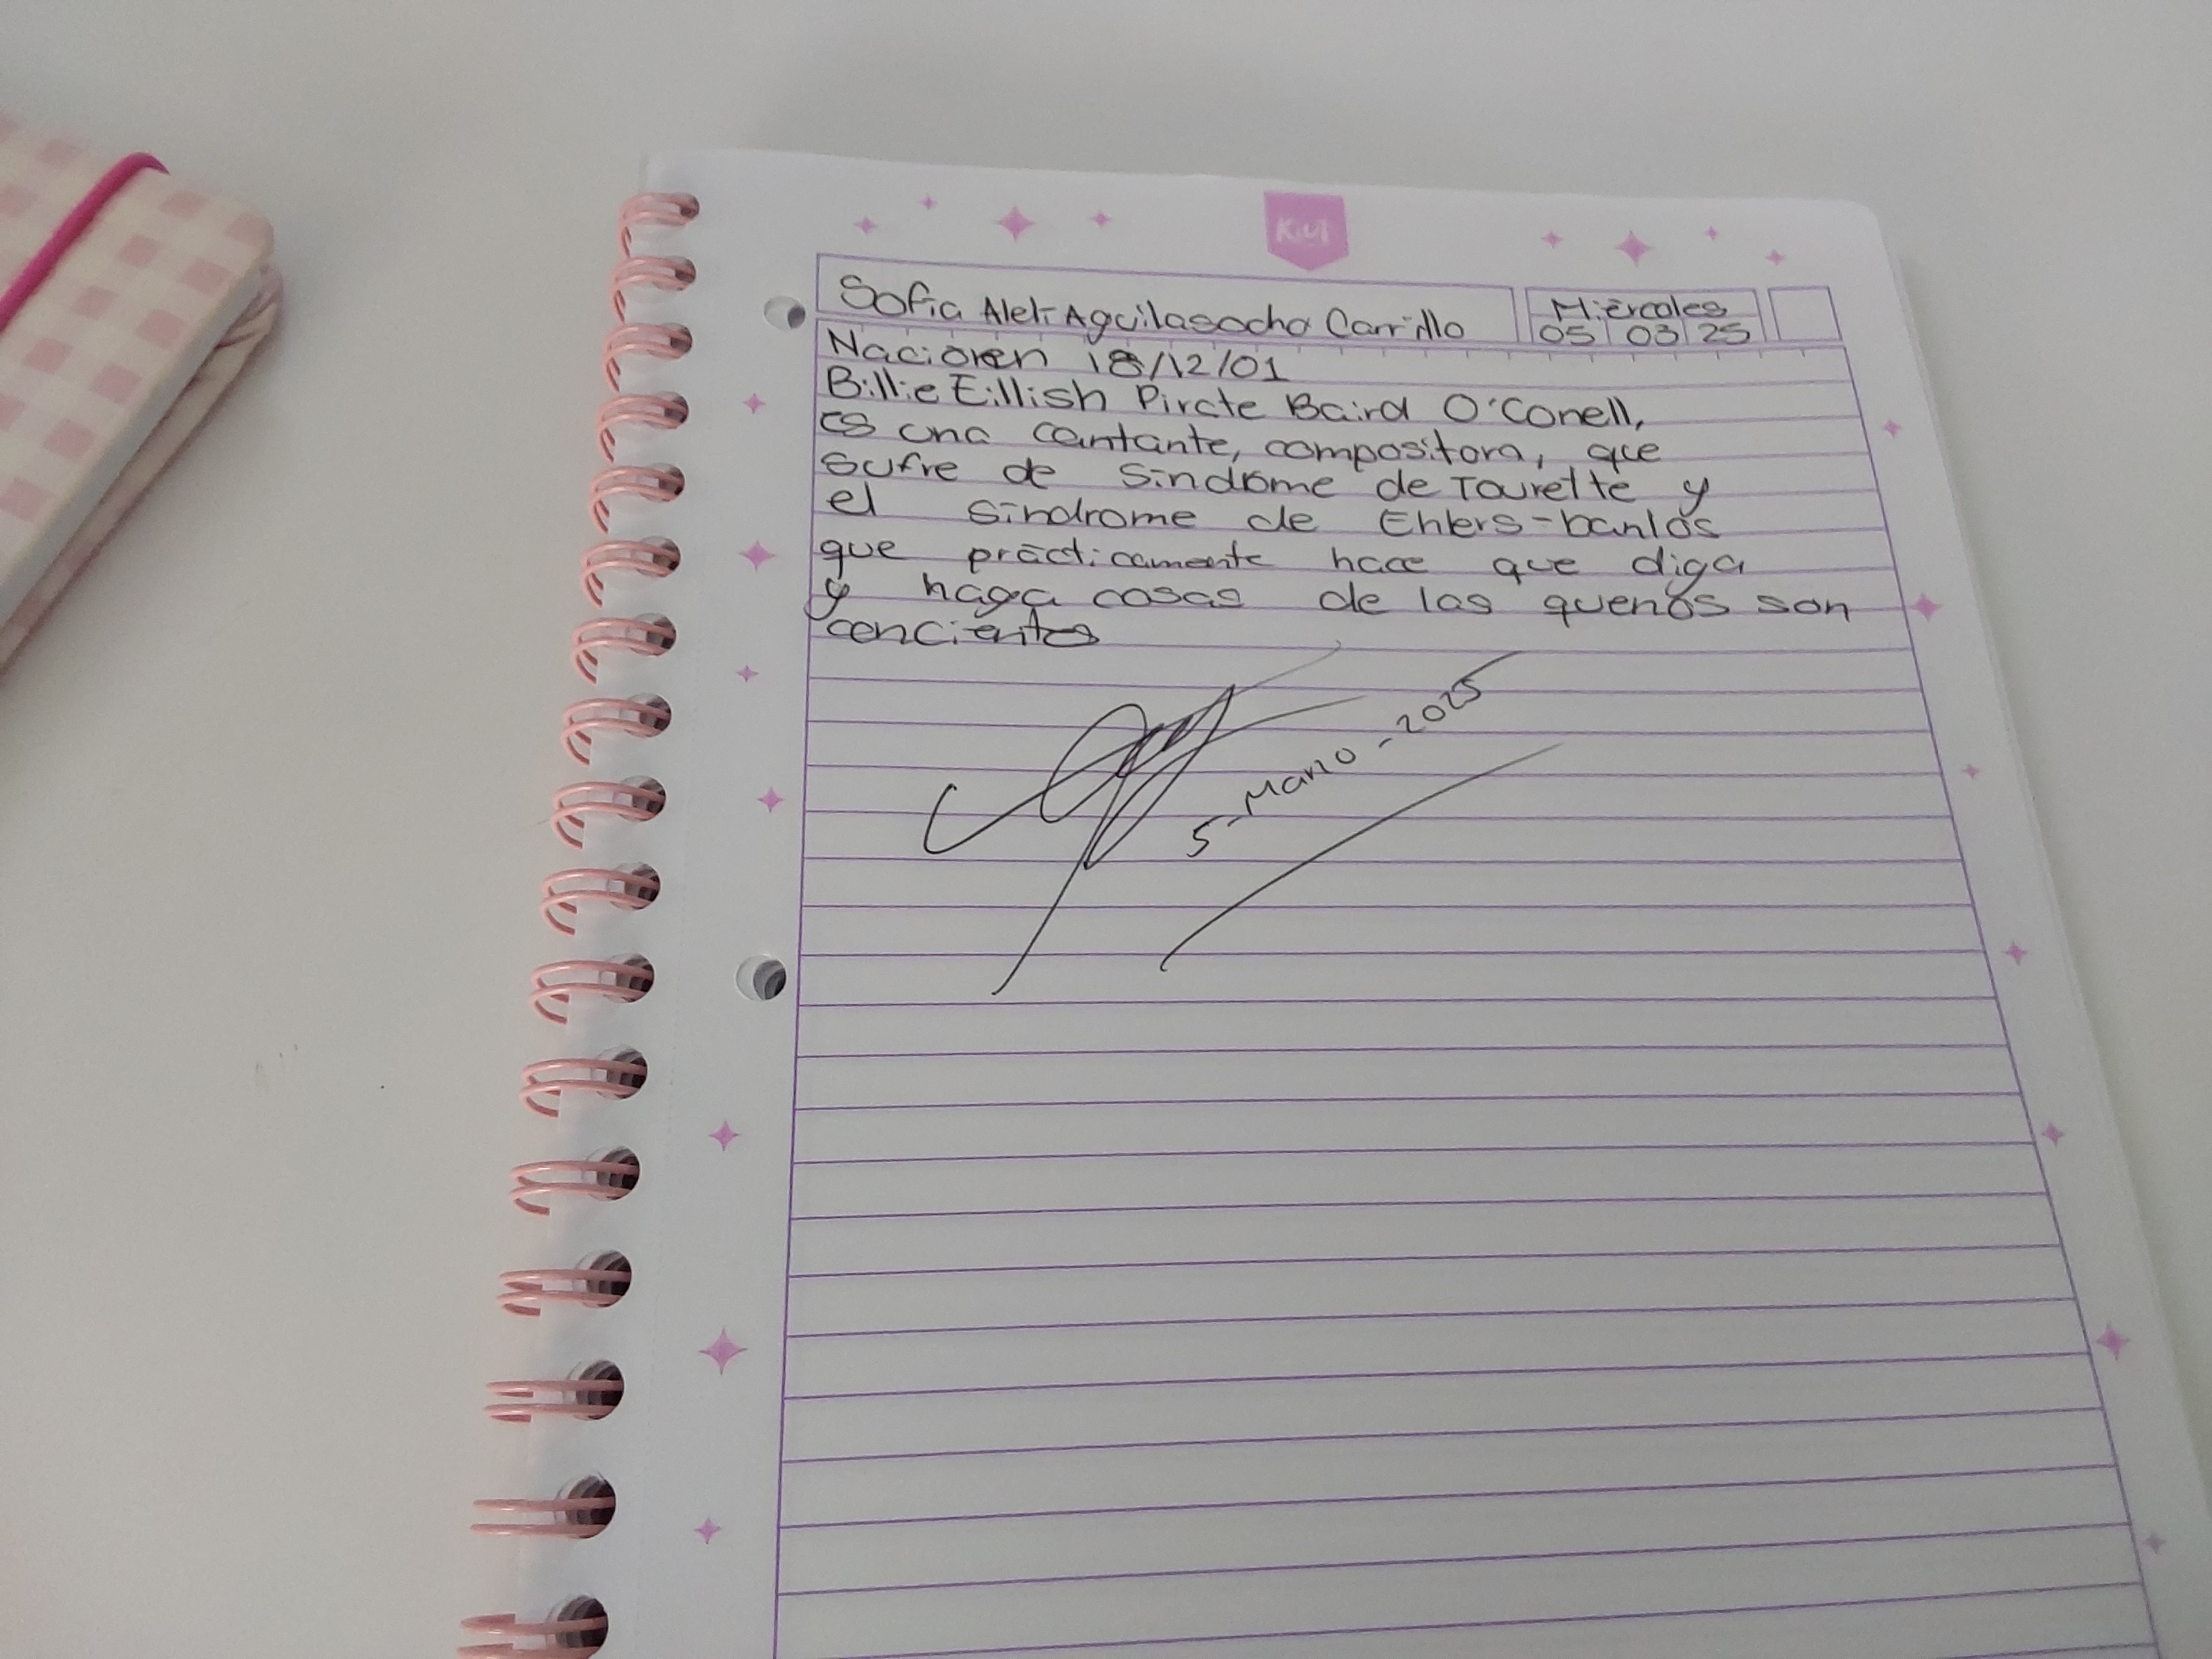 Kiut
Sofia Alek Aguilasocho Carrillo
Miércoles
05 03 25
Nacioren 18/12/01
Billie Eillish Pircte Baird O'Conell,
es una cantante, compositora, que
sufre de síndrome de Tourette y
el síndrome de Ehlers-banlos
que prácticamente hace que diga
y haga cosas de las quenos son
concientes
5-Marzo-2025